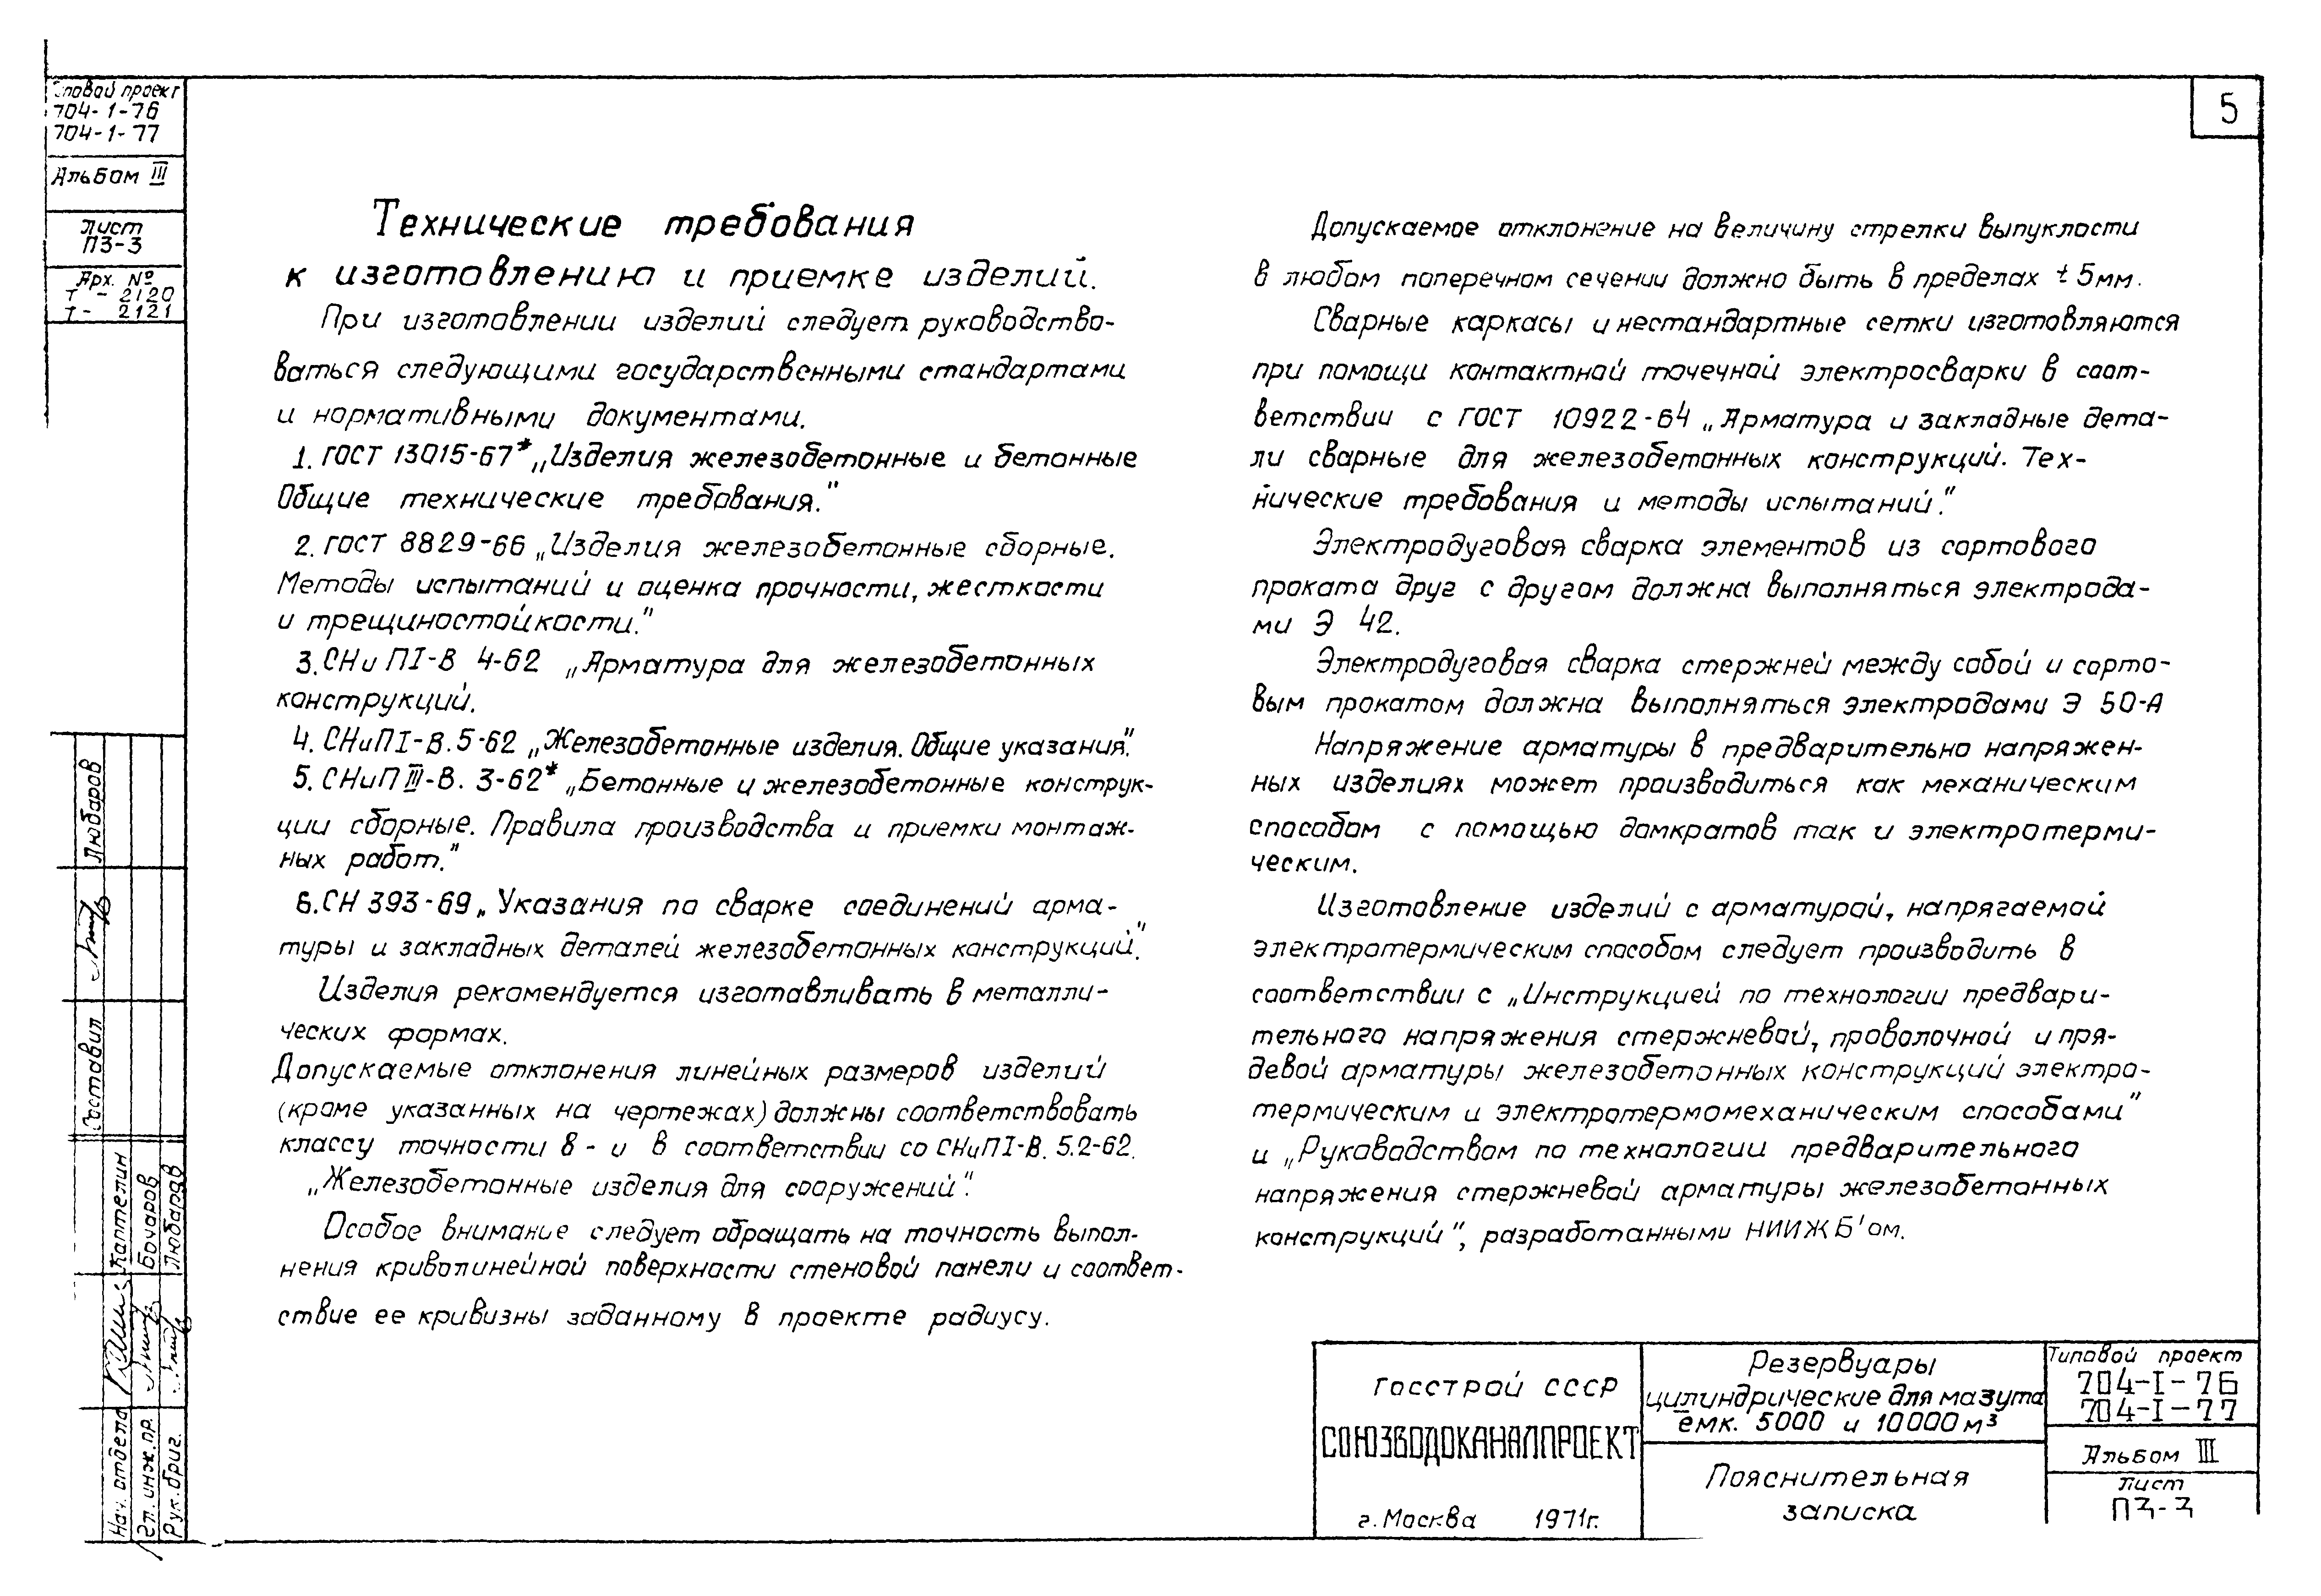 Типовой проект
704-1-76
704-1-77
Альбом III
Лист
ПЗ-3
Арх. №
Т - 2120
Т - 2121
5
Технические требования
к изготовлению и приемке изделий.
При изготовлении изделий следует руководство-
ваться следующими государственными стандартами
и нормативными документами.
1. ГОСТ 13015-67* „Изделия железобетонные и бетонные
Общие технические требования."
2. ГОСТ 8829-66 „Изделия железобетонные сборные.
Методы испытаний и оценка прочности, жесткости
и трещиностойкости."
3. СНиП I-В 4-62 „Арматура для железобетонных
конструкций.
4. СНиП I-В.5-62 „Железобетонные изделия. Общие указания".
5. СНиП III-В. 3-62* „Бетонные и железобетонные конструк-
ции сборные. Правила производства и приемки монтаж-
ных работ."
6. СН 393-69 „Указания по сварке соединений арма-
туры и закладных деталей железобетонных конструкций".
Изделия рекомендуется изготавливать в металли-
ческих формах.
Допускаемые отклонения линейных размеров изделий
(кроме указанных на чертежах) должны соответствовать
классу точности 8 - и в соответствии со СНиП I-В. 5.2-62.
„Железобетонные изделия для сооружений".
Особое внимание следует обращать на точность выпол-
нения криволинейной поверхности стеновой панели и соответ-
ствие ее кривизны заданному в проекте радиусу.
Допускаемое отклонение на величину стрелки выпуклости
в любом поперечном сечении должно быть в пределах ± 5мм.
Сварные каркасы и нестандартные сетки изготовляются
при помощи контактной точечной электросварки в соот-
ветствии с ГОСТ 10922-64 „Арматура и закладные дета-
ли сварные для железобетонных конструкций. Тех-
нические требования и методы испытаний."
Электродуговая сварка элементов из сортового
проката друг с другом должна выполняться электрода-
ми Э 42.
Электродуговая сварка стержней между собой и сорто-
вым прокатом должна выполняться электродами Э 50-А
Напряжение арматуры в предварительно напряжен-
ных изделиях может производиться как механическим
способом с помощью домкратов так и электротерми-
ческим.
Изготовление изделий с арматурой, напрягаемой
электротермическим способом следует производить в
соответствии с „Инструкцией по технологии предвари-
тельного напряжения стержневой, проволочной и пря-
девой арматуры железобетонных конструкций электро-
термическим и электротермомеханическим способами"
и „Руководством по технологии предварительного
напряжения стержневой арматуры железобетонных
конструкций", разработанными НИИЖБ'ом.
Любаров
Составил
Каптелин
Бочаров
Любаров
Нач. отдела
Гл. инж. пр.
Рук. бриг.
Госстрой СССР
СОЮЗВОДОКАНАЛПРОЕКТ
г. Москва 1971г.
Резервуары
цилиндрические для мазута
емк. 5000 и 10000 м³
Пояснительная
записка
Типовой проект
704-I-76
704-I-77
Альбом III
Лист
ПЗ-3